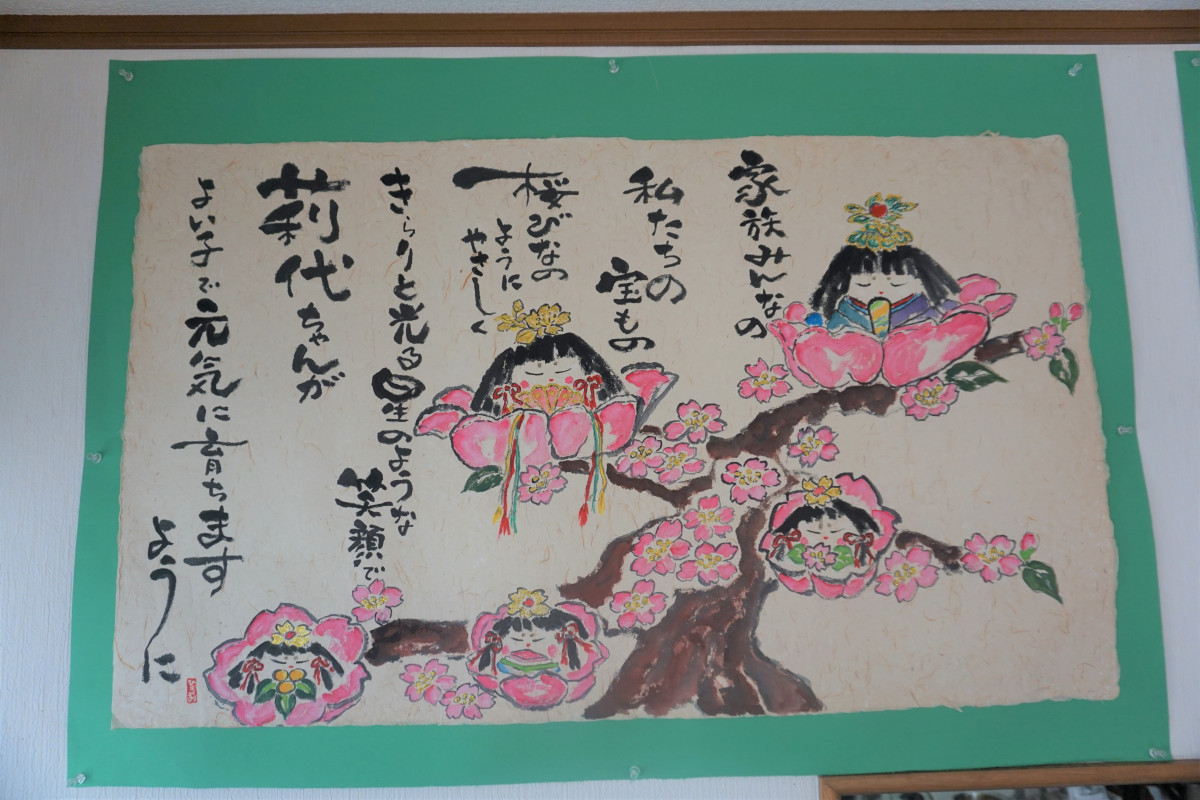 家族みんなの
私たちの
宝もの
桜びなの
ように
やさしく
きらりと光る星のような
笑顔で
莉代ちゃんが
よい子で元気に育ちます
ように